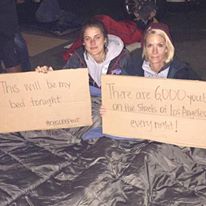 This will be my
bed tonight
There are 6,000 youth
on the Streets of Los Angeles
every night!